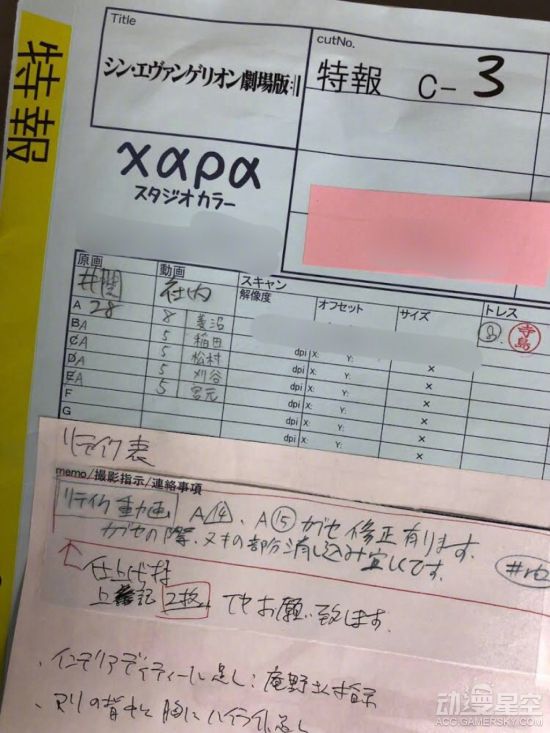 特報
Title
シン・エヴァンゲリオン劇場版:||
cutNo.
特報 C-3
χαρα
スタジオカラー
原画
井関
動画
社内
スキャン
解像度
オフセット
サイズ
トレス
寺島
A 28 8 菱沼
BA 5 稲田
CA 5 松村 dpi X: Y: ×
DA 5 刈谷 dpi X: Y: ×
EA 5 宮元 dpi X: Y: ×
F dpi X: Y: ×
G dpi X: Y: ×
dpi X: Y: ×
リテイク表
memo/撮影指示/連絡事項
リテイク動画 A⑭、A⑮ ガセ修正有ります。
ガセの際、ヌキの部分消し込み宜しいです。
仕上げ様
上記 でお願い致します。
・インテリアディティール足し:庵野 指示
・マリの背中と胸にハイライト足し
动漫星空
ACG.GAMERSKY.COM